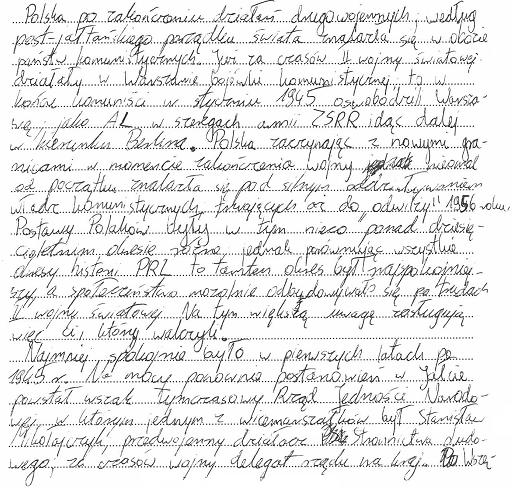 Polska po zakończeniu działań drugowojennych, według
post-jałtańskiego porządku świata znalazła się w obozie
państw komunistycznych. Już za czasów II wojny światowej
działały w Warszawie bojówki komunistycznej, to w
końcu komuniści w styczniu 1945 oswobodzili Warsza-
wę, jako AL w szeregach armii ZSRR idąc dalej
w kierunku Berlina. Polska zaczynając z nowymi gra-
nicami w momencie zakończenia wojny nieomal
od początku znalazła się pod silnym oddziaływaniem
władz komunistycznych trwających aż do „odwilży" 1956 roku.
Postawy Polaków były w tym nieco ponad dziesię-
cioletnim okresie różne, jednak porównując wszystkie
okresy historii PRL to tamten okres był najspokojniej-
szy, a społeczeństwo mozolnie odbudowywało się po trudach
II wojny światowej. Na tym większą uwagę zasługują
więc ci, którzy walczyli.
Najmniej spokojnie było w pierwszych latach po
1945 r. Na mocy ponownie postanowień w Jałcie
powstał wszak Tymczasowy Rząd Jedności Narodo-
wej, w którym jednym z wicemarszałków był Stanisław
Mikołajczyk, przedwojenny działacz Stronnictwa Ludo-
wego, za czasów wojny delegat rządu na kraj.